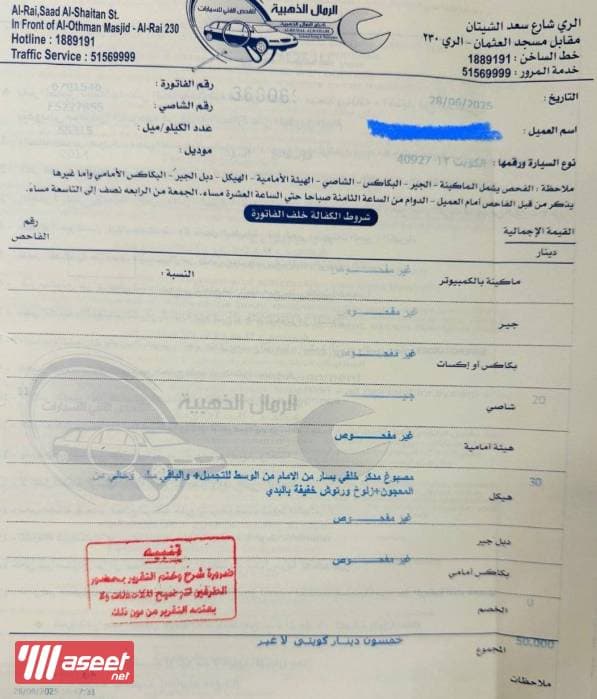 Al-Rai,Saad Al-Shaitan St.
In Front of Al-Othman Masjid - Al-Rai 230
Hotline : 1889191
Traffic Service : 51569999
الرمال الذهبية
الفحص الفني للسيارات
الري شارع سعد الشيتان
مقابل مسجد العثمان - الري ٢٣٠
خط الساخن : 1889191
خدمة المرور : 51569999
التاريخ : 28/06/2025
رقم الفاتورة :
اسم العميل :
رقم الشاصي :
عدد الكيلو/ميل :
نوع السيارة ورقمها : الكويت ١٢-40927
موديل :
ملاحظة : الفحص يشمل الماكينة - الجير - البكاكس - الشاصي - الهيئة الأمامية - الهيكل - دبل الجير - البكاكس الأمامي وأما غيرها
يذكر من قبل الفاحص أمام العميل - الدوام من الساعة الثامنة صباحا حتى الساعة العشرة مساء، الجمعة من الرابعه نصف إلى التاسعة مساء.
شروط الكفالة خلف الفاتورة
القيمة الإجمالية
رقم الفاحص
دينار
ماكينة بالكمبيوتر
النسبة :
غير مفحوص
جير
غير مفحوص
بكاكس أو إكسات
غير مفحوص
20
شاصي
جيد
هيئة أمامية
غير مفحوص
30
هيكل
مصبوغ مدكر خلفي يسار من الامام من الوسط للتجميل+ والباقي سليم وخالي من
المعجون+زلوخ ورنوش خفيفة بالبدي
دبل جير
غير مفحوص
بكاكس أمامي
غير مفحوص
الخصم
0
المجموع
50.000
خمسون دينار كويتي لا غير
ملاحظات
الرمال الذهبية
تنبيه
ضرورة شرح وختم التقرير بحضور
الطرفين لتوضيح الملاحظات ولا
يعتمد التقرير من دون ذلك
waseet
.net
28/06/2025